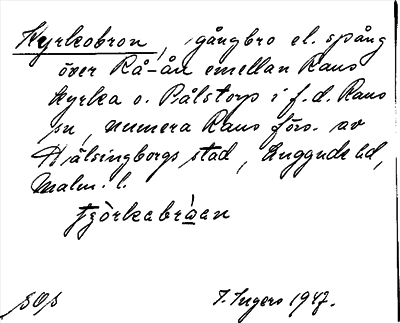 Kyrkobron, gångbro el. spång
över Rå-ån emellan Raus
kyrka o. Pålstorp i f.d. Raus
sn, numera Raus förs. av
Hälsingborgs stad, Luggude hd,
Malm. l.
I. Ingers 1947.